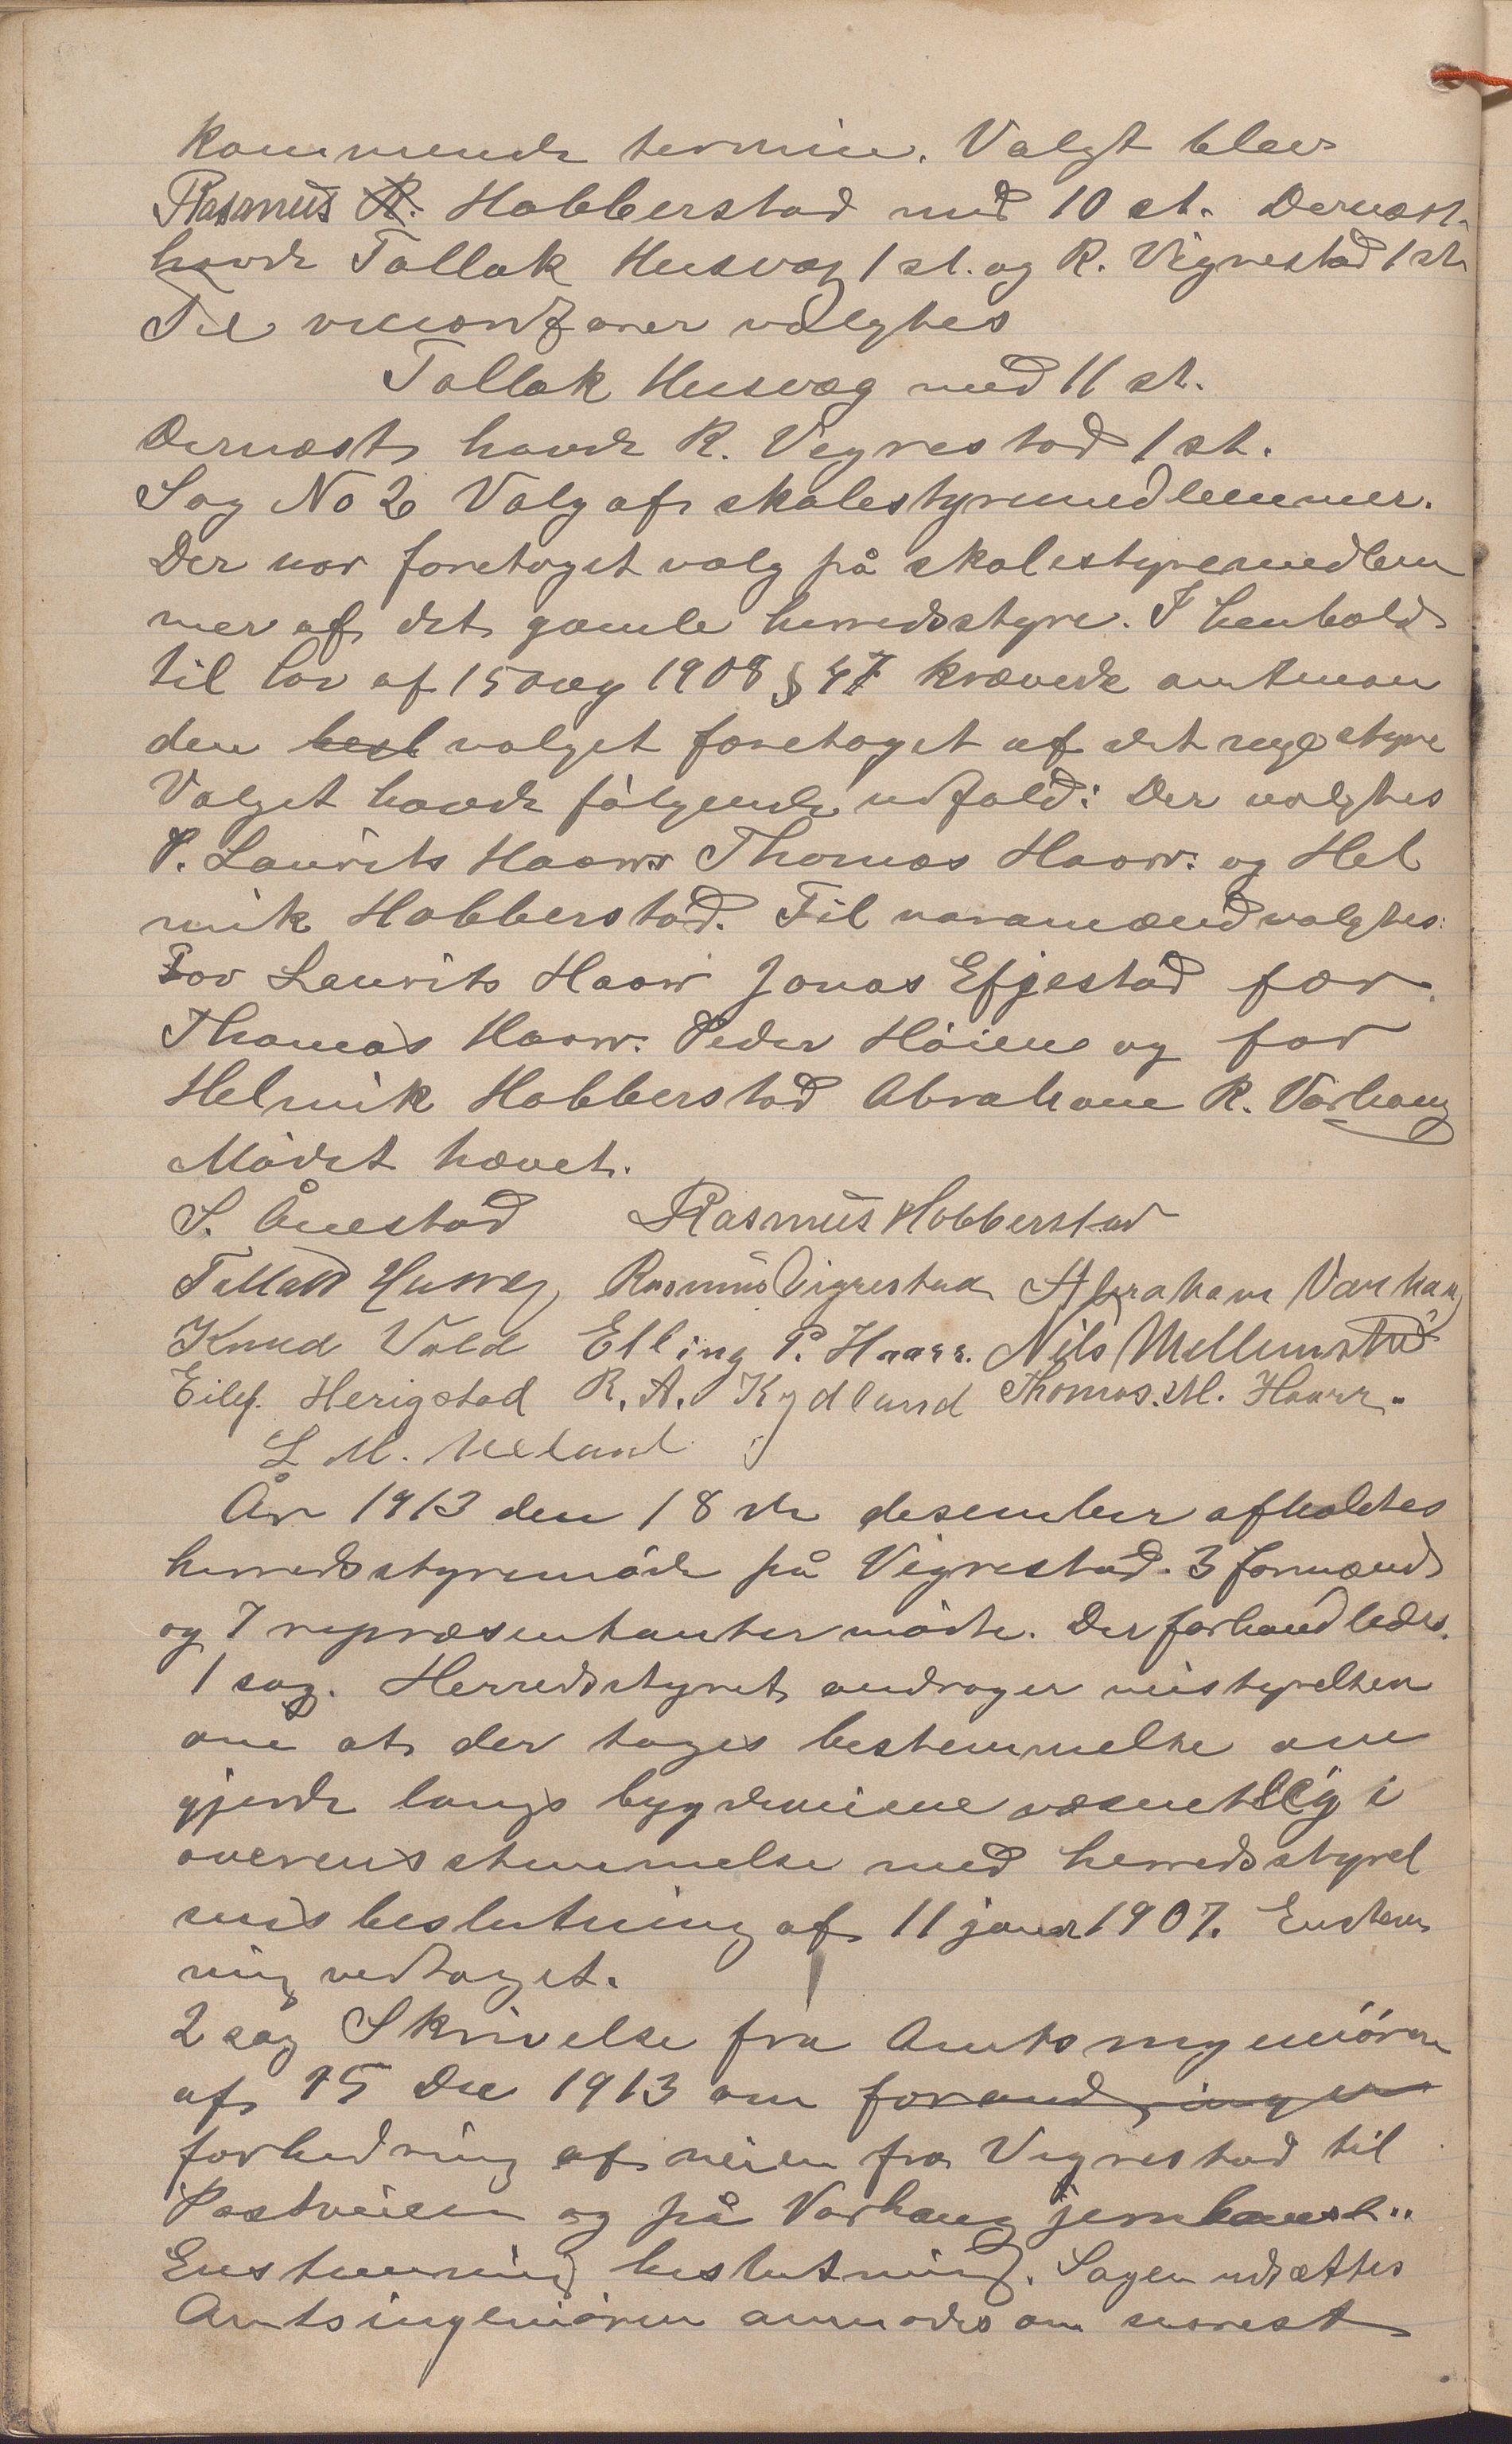 kommende termin. Valgt blev
Rasmus R. Hobberstad med 10 st. Dernæst
havde Tollak Husvæg 1 st. og R. Vigrestad 1 st.
Til viceordfører valgtes
Tollak Husvæg med 11 st.
Dernæst havde R. Vigrestad 1 st.
Sag No 2 Valg af skolestyremedlemmer.
Der var foretaget valg på skolestyremedlem
mer af det gamle herredsstyre. I henhold
til lov af 15 aug 1908 § 47 krævede amtman
den besl valget foretaget af det nye styre
Valget havde følgende udfald: Der valgtes
P. Laurits Haarr Thomas Haarr. og Hel
mik Hobberstad. Til varamænd valgtes:
For Laurits Haarr Jonas Efjestad for
Thomas Haarr. Peder Höiene og for
Helmik Hobberstad Abraham R. Varhaug
Mödet hævet.
S. Ånestad Rasmus Hobberstad
Tollak Husveg Rasmus Vigrestad Abraham Varhaug
Knud Vold Elling P. Haarr. Nils Mellemstrå
Eilef. Herigstad R. A. Kydland Thomas. M. Haarr.
L M. Ueland
År 1913 den 18 de desember afholdtes
herredsstyremöde på Vigrestad. 3 formænd
og 7 repræsentanter mödte. Der forhandledes.
1 sag. Herredsstyret andrager veistyrelsen
om at der tages bestemmelse om
gjerde langs bygdeveiene væsentlig i
overensstemmelse med herredsstyrel
sens beslutning af 11 januar 1907. Enstem
mig vedtaget.
2 sag Skrivelse fra Amtsingeniören
af 15 Des 1913 om forandringer
forbedring af veien fra Vigrestad til
Postveien og på Varhaug jernbanest..
Enstemmig beslutning. Sagen udsættes
Amtsingeniören anmodes om snarest